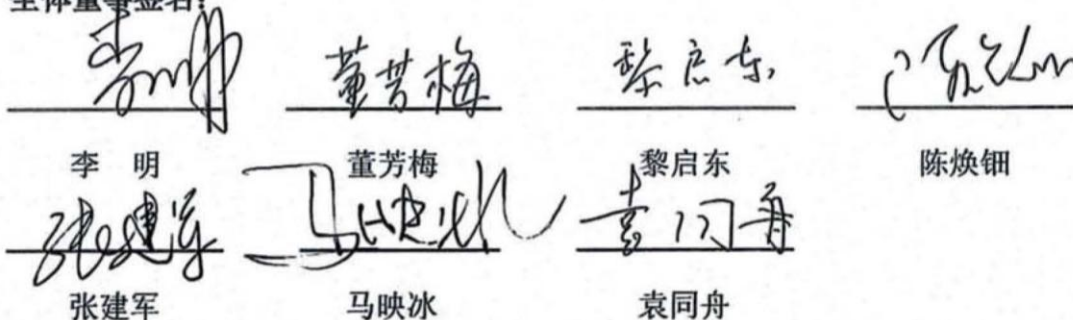 全体董事签名：
李明 董芳梅 黎启东
李 明 董芳梅 黎启东 陈焕钿
张建军 马映冰 袁同舟
张建军 马映冰 袁同舟